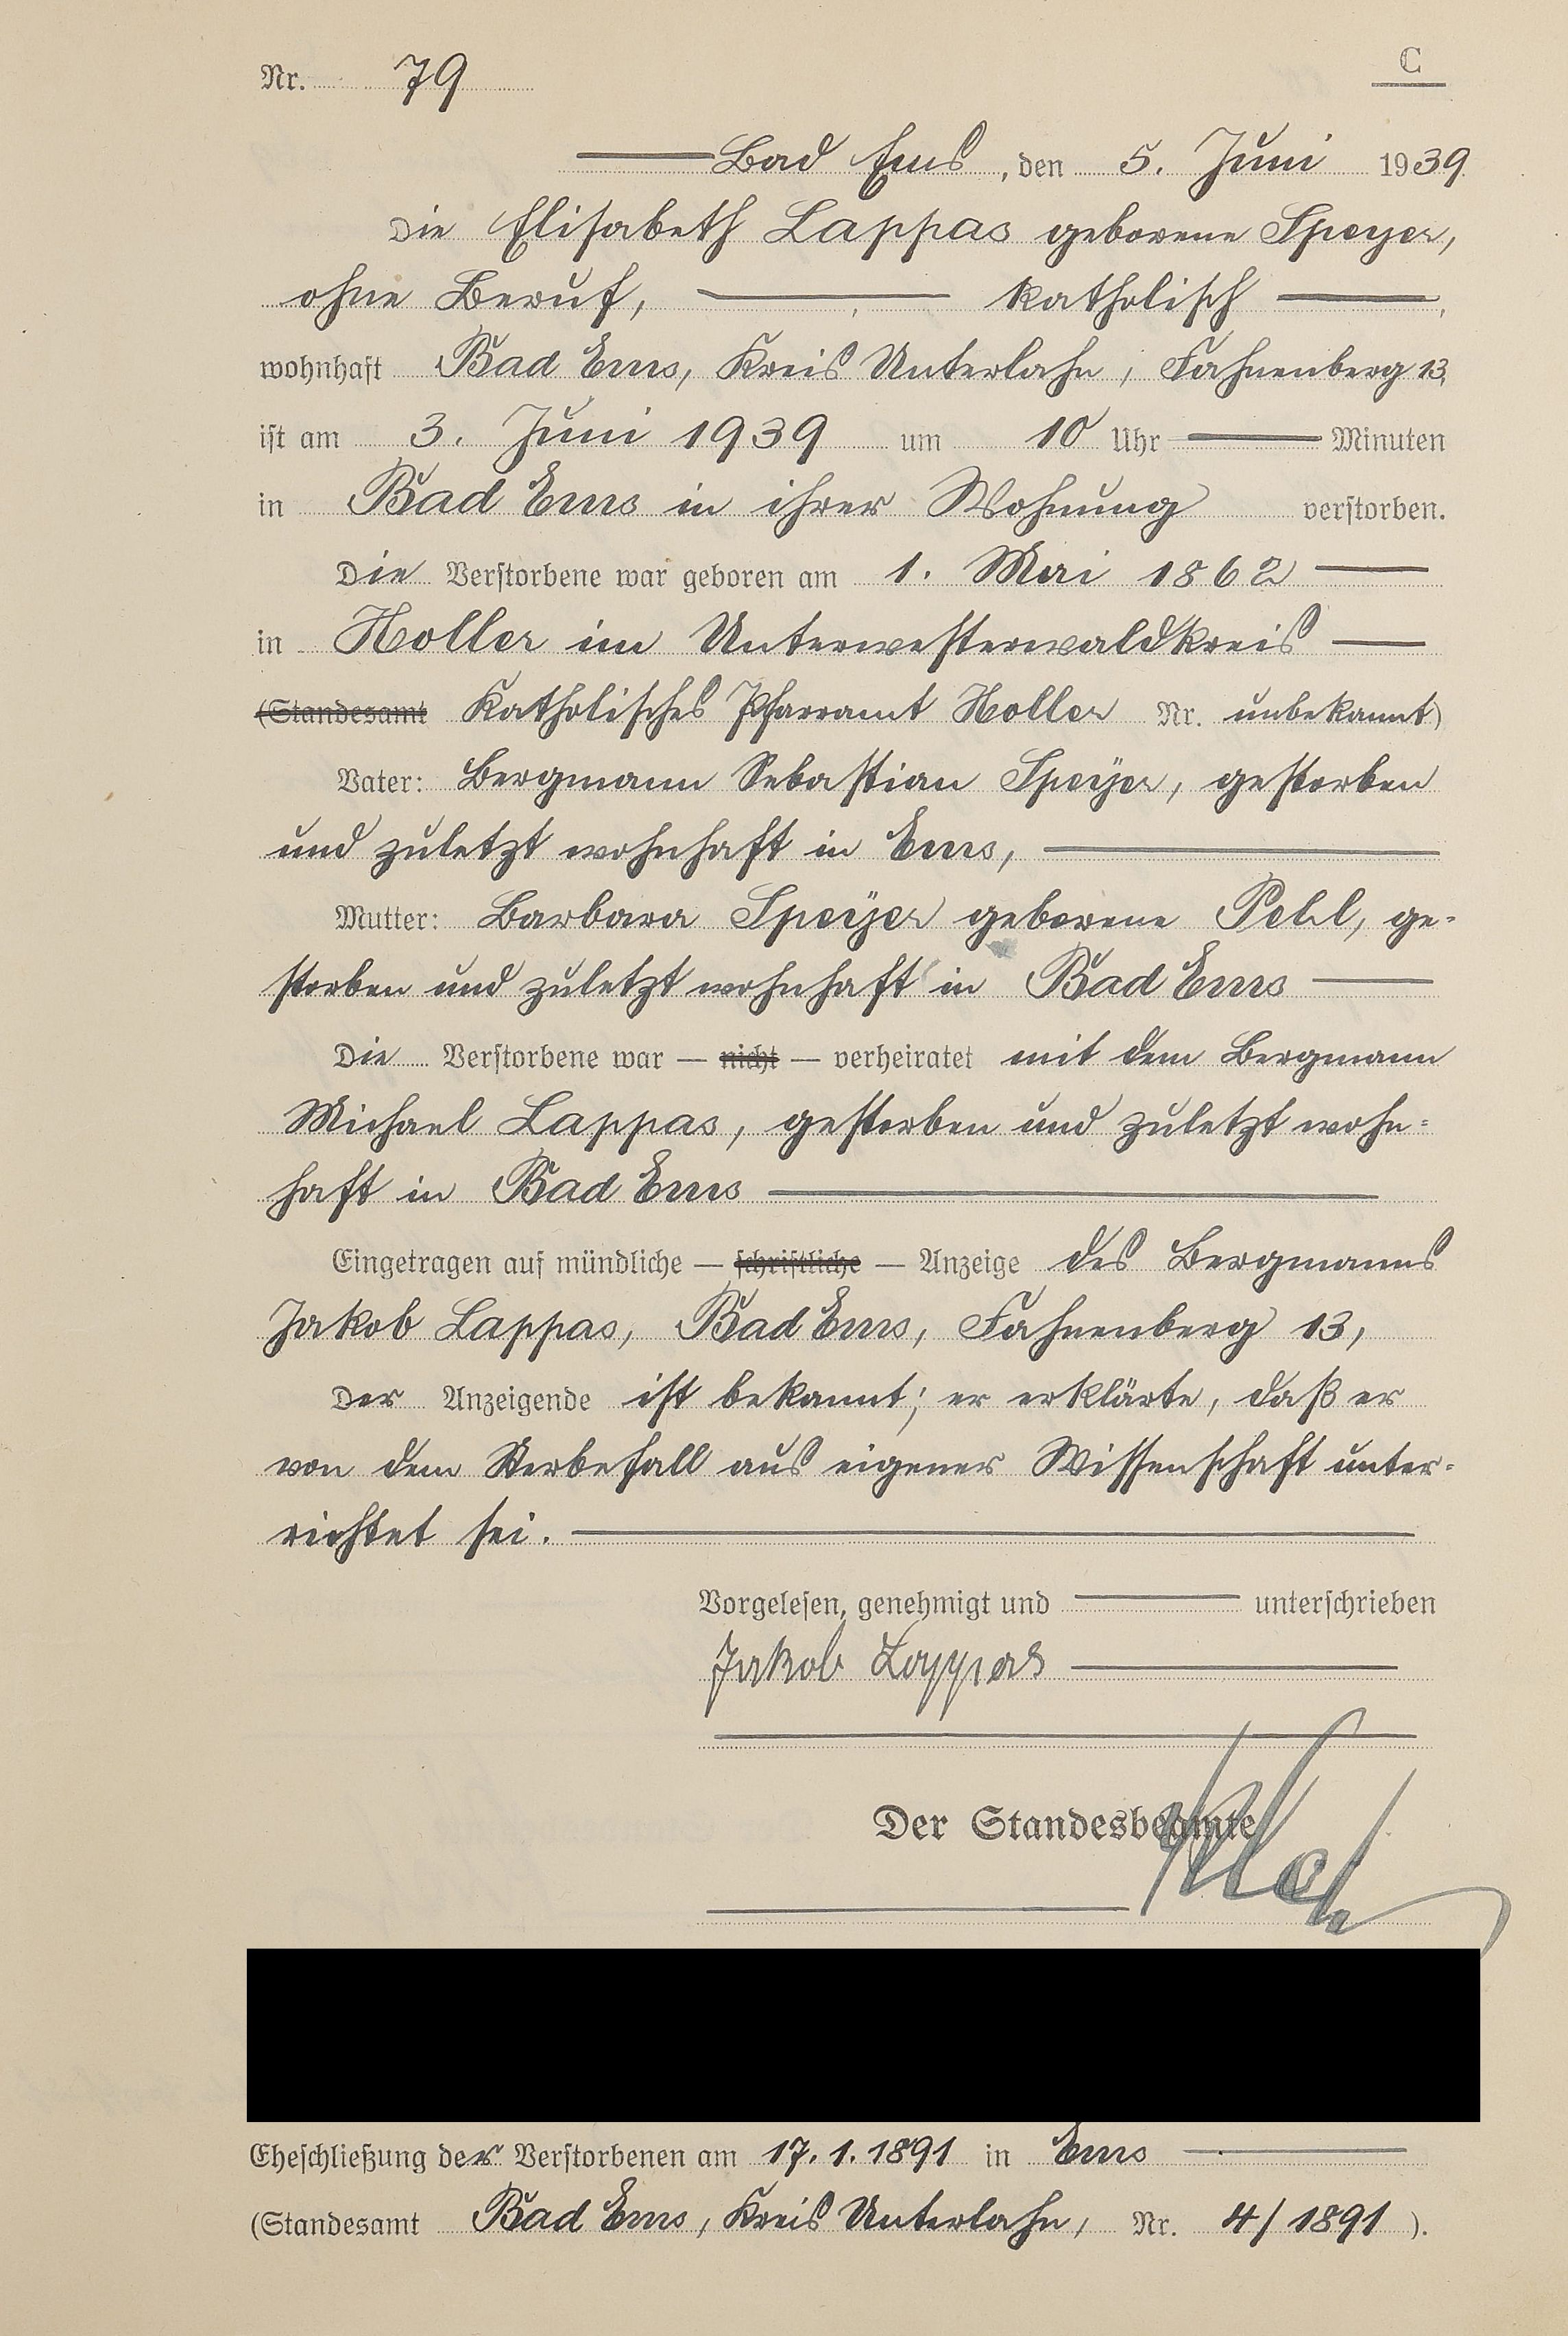 Nr. 79
C
Bad Ems, den 5. Juni 1939
Die Elisabeth Lappas geborene Speyer,
ohne Beruf, katholisch,
wohnhaft Bad Ems, Kreis Unterlahn, Fahnenberg 13,
ist am 3. Juni 1939 um 10 Uhr Minuten
in Bad Ems in ihrer Wohnung verstorben.
Die Verstorbene war geboren am 1. Mai 1862
in Holler im Unterwesterwaldkreis
(Standesamt Katholisches Pfarramt Holler Nr. unbekannt)
Vater: Bergmann Sebastian Speyer, gestorben
und zuletzt wohnhaft in Ems,
Mutter: Barbara Speyer geborene ge-
storben und zuletzt wohnhaft in Bad Ems
Die Verstorbene war — nicht — verheiratet mit dem Bergmann
Michael Lappas, gestorben und zuletzt wohn-
haft in Bad Ems
Eingetragen auf mündliche — schriftliche — Anzeige des Bergmanns
Jakob Lappas, Bad Ems, Fahnenberg 13,
Der Anzeigende ist bekannt; er erklärte, daß er
von dem Sterbefall aus eigener Wissenschaft unter-
richtet sei.
Vorgelesen, genehmigt und unterschrieben
Jakob Lappas
Der Standesbeamte
Eheschließung der Verstorbenen am 17.1.1891 in Ems
(Standesamt Bad Ems, Kreis Unterlahn, Nr. 4/1891).